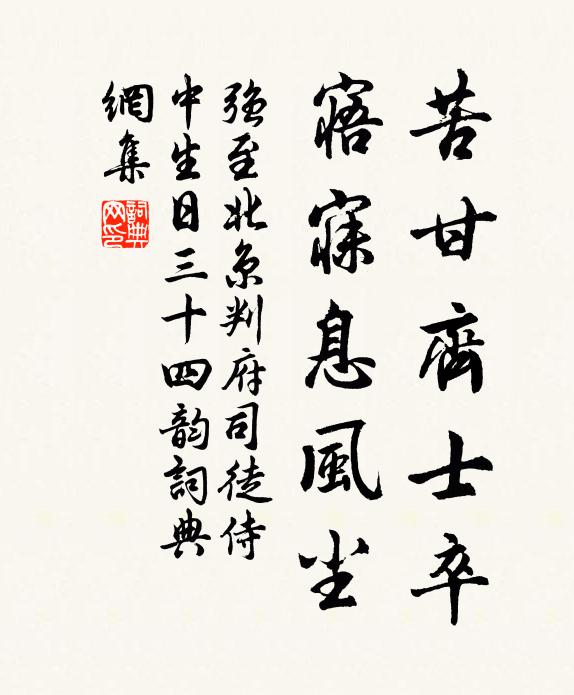 苦甘齊士卒
寤寐息風尘
強至北京判府司徒侍
中生日三十四韵詞典
網集
詞典網印